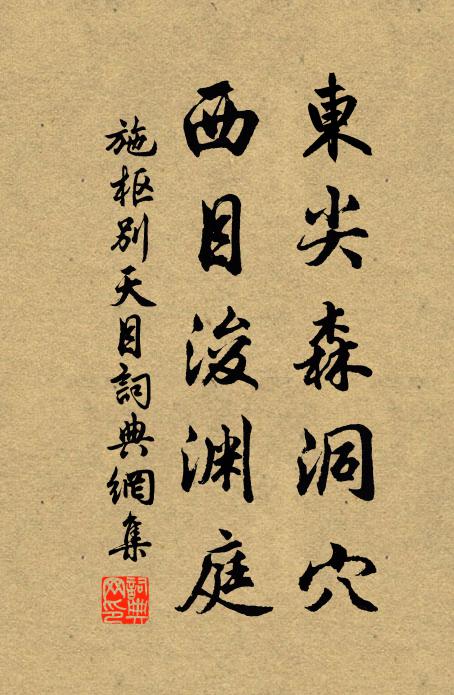 東尖森洞穴
西目浚渊庭
施枢别天目詞典網集
詞典网印